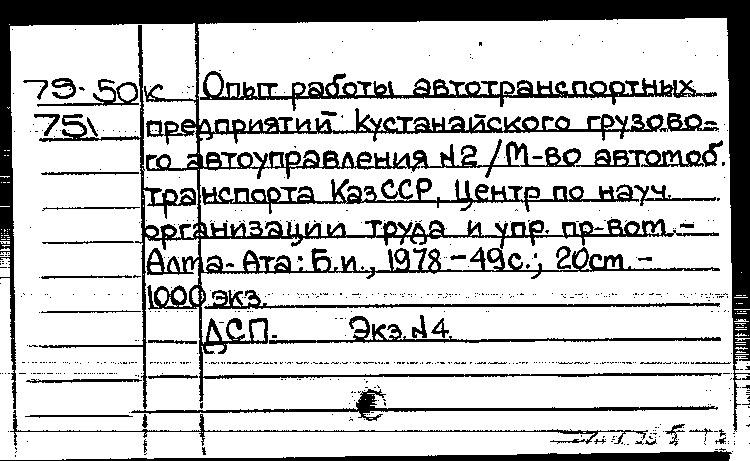 79-50к Опыт работы автотранспортных
751 предприятий Кустанайского грузово=
го автоуправления N2 / М-во автомоб.
транспорта КазССР, Центр по науч.
организации труда и упр. пр-вом. -
Алма-Ата: Б.и., 1978. - 49с.; 20см. -
1000 экз.
ДСП. Экз. N4.